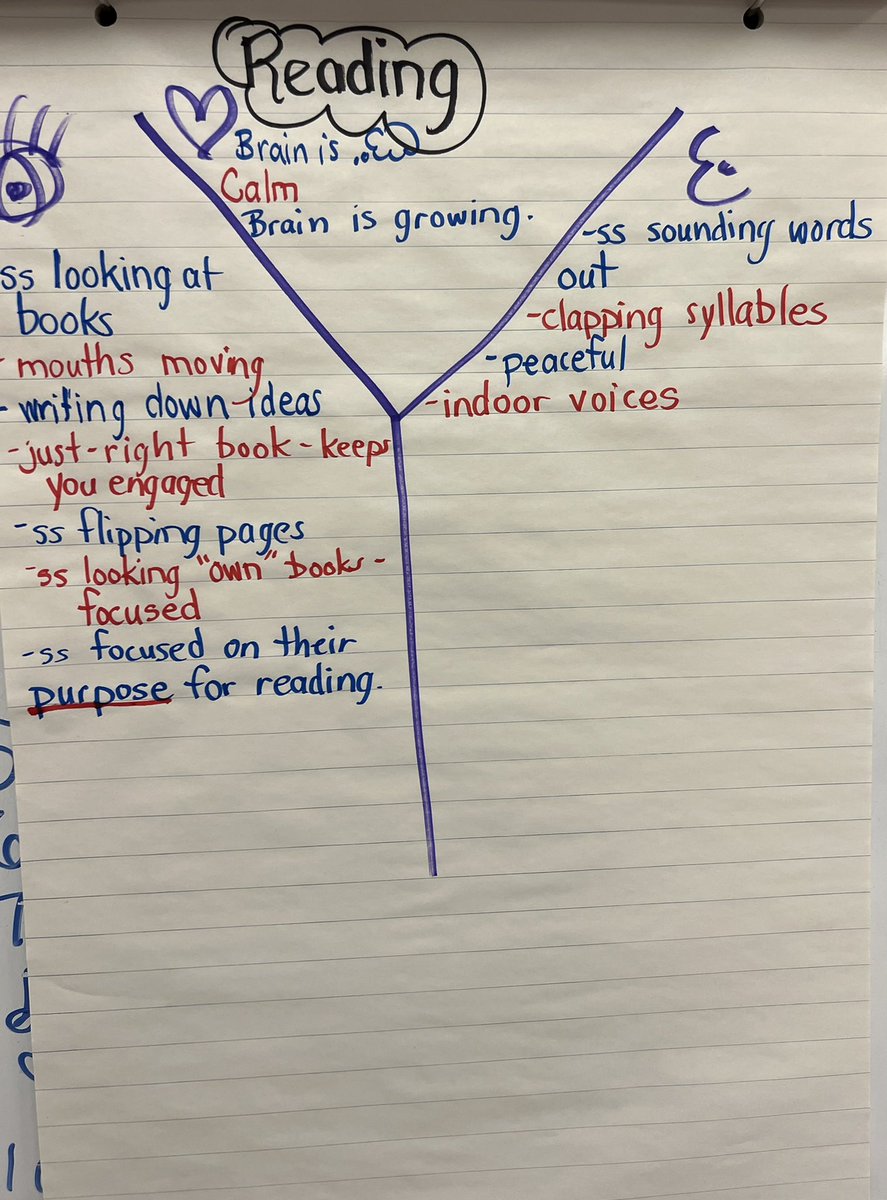 Reading
Brain is ..
Calm
Brain is growing.
ss looking at
books
- mouths moving
- writing down ideas
-just-right book - keeps
you engaged
-ss flipping pages
-ss looking "own" books -
focused
-ss focused on their
purpose for reading.
-ss sounding words
out
-clapping syllables
-peaceful
-indoor voices